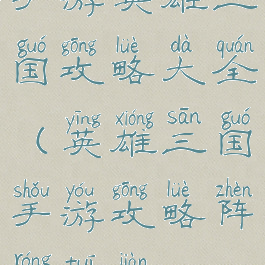 手游英雄三
guó gōng luè dà quán
国攻略大全
yīng xióng sān guó
（英雄三国
shǒu yóu gōng luè zhèn
手游攻略阵
róng tuī jiàn